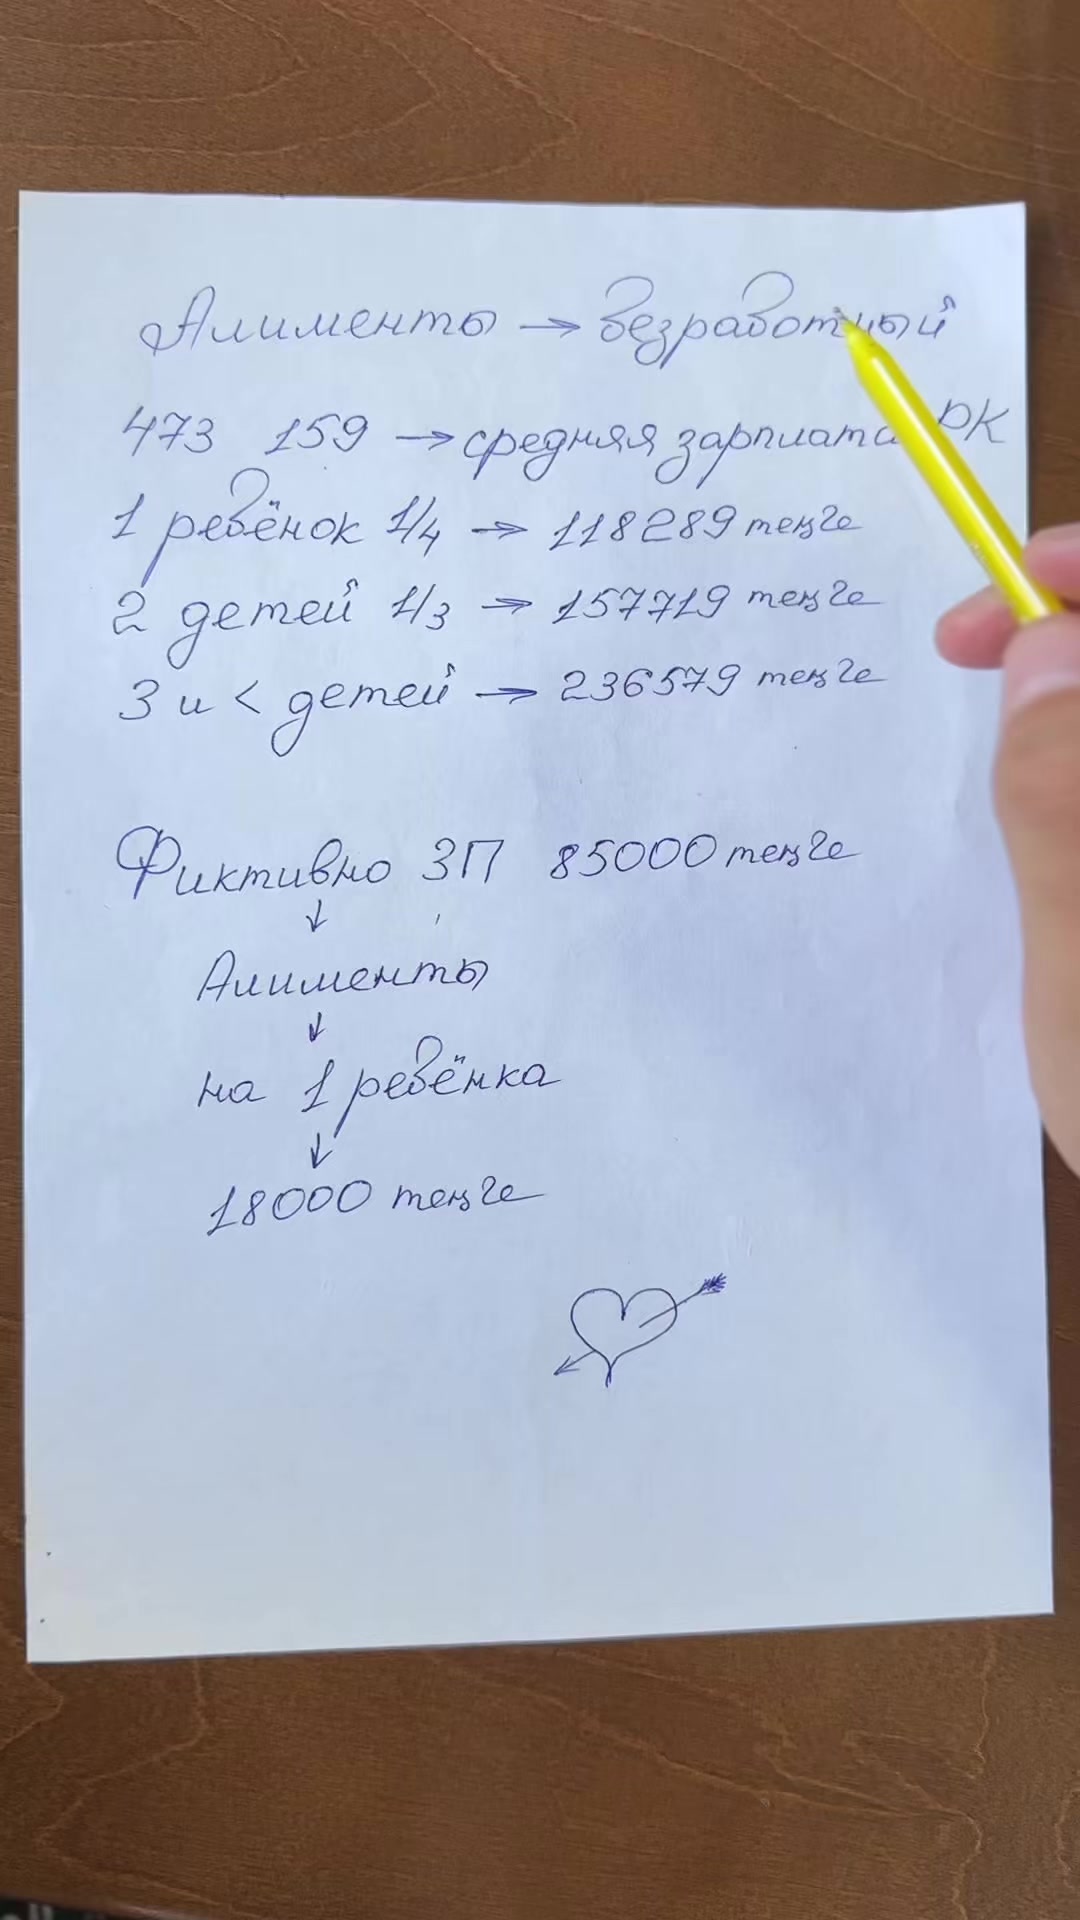 Алименты → безработный
473 159 → средняя зарплата РК
1 ребёнок 1/4 → 118289 теңге
2 детей 1/3 → 157719 теңге
3 и < детей → 236579 теңге
Фиктивно ЗП 85000 теңге
↓
Алименты
↓
на 1 ребёнка
↓
18000 теңге